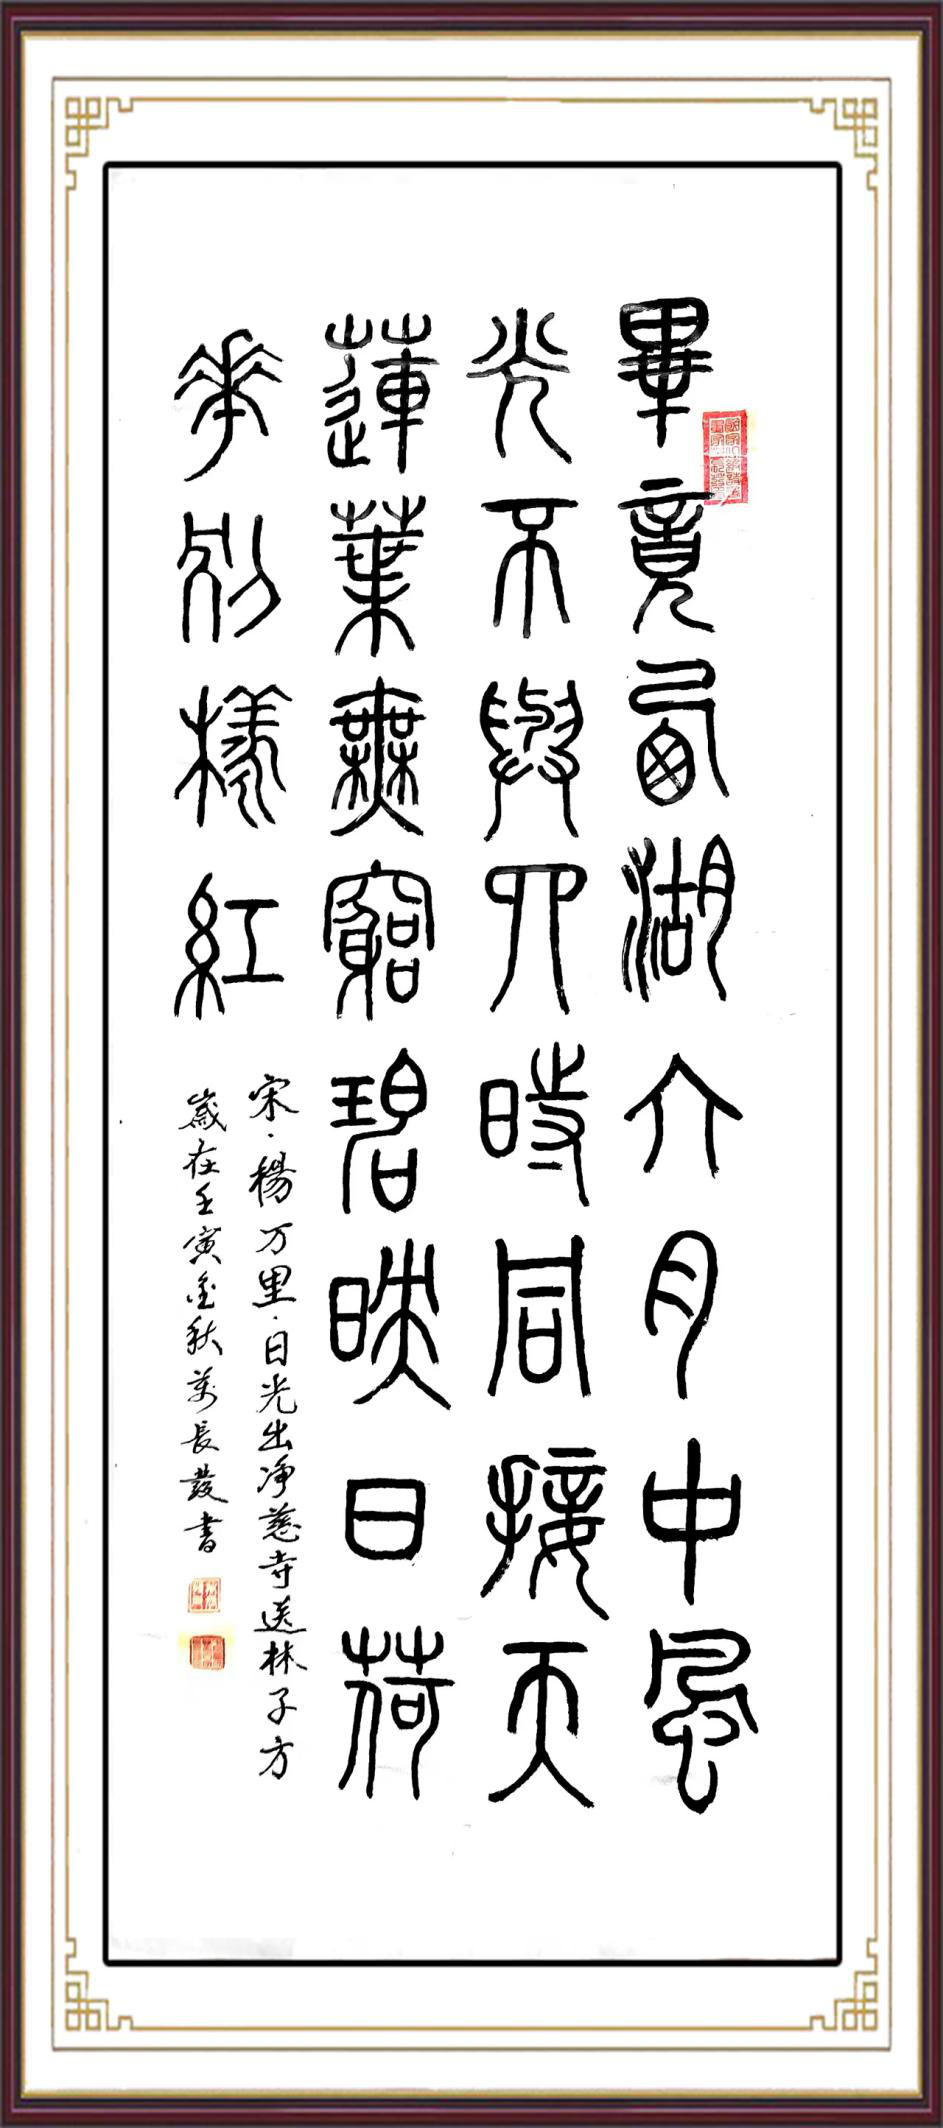 畢竟西湖六月中風
光不與四時同接天
蓮葉無窮碧映日荷
華別樣紅
宋·楊万里·日光出净慈寺送林子方
歲在壬寅金秋長發書